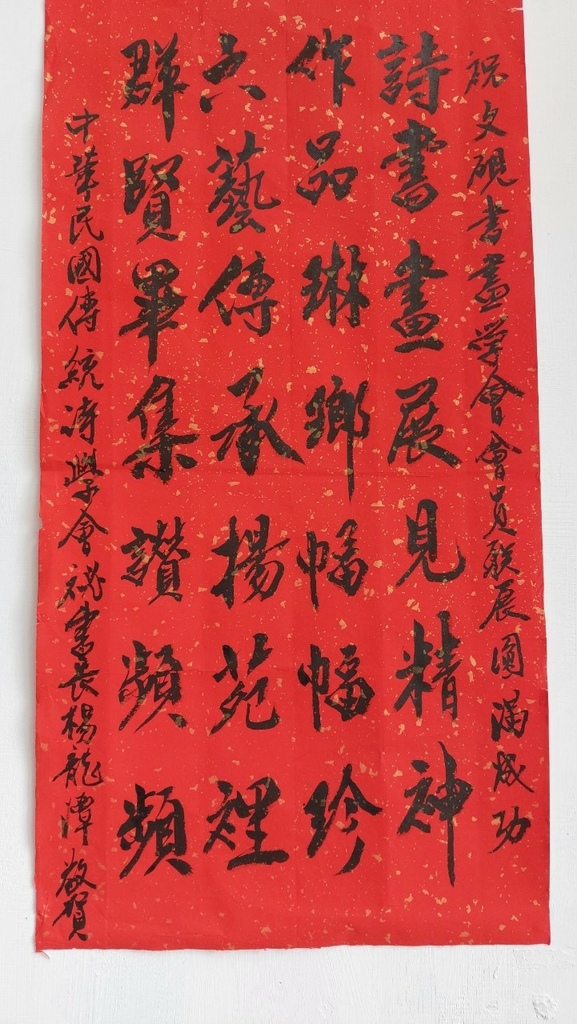 祝文硯書畫學會會員联展圓滿成功
詩書畫展見精神
作品琳鄉幅幅珍
六藝傳承揚苑裡
群賢畢集讚頻頻
中華民國傳統詩學會祕書長楊龍潭敬賀